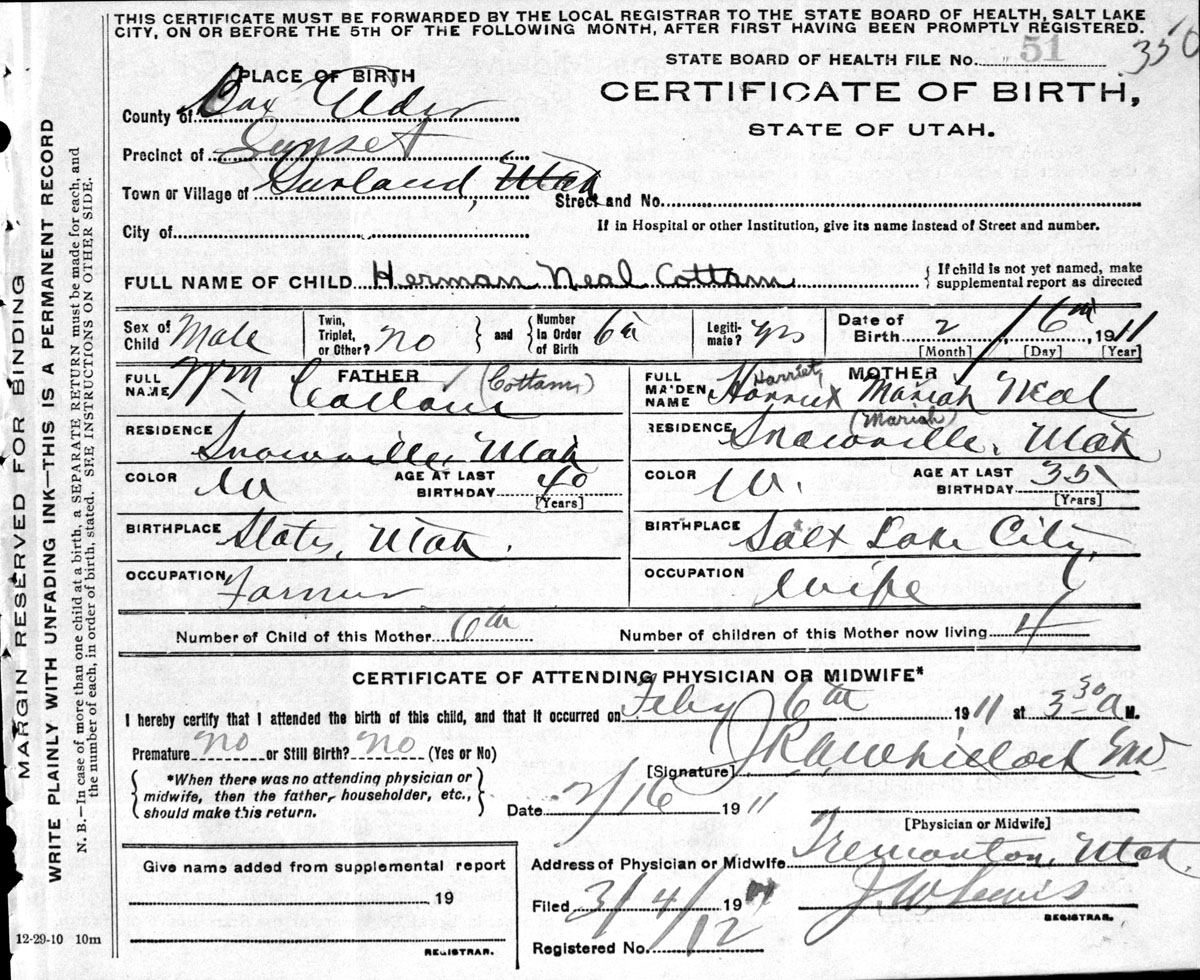 THIS CERTIFICATE MUST BE FORWARDED BY THE LOCAL REGISTRAR TO THE STATE BOARD OF HEALTH, SALT LAKE
CITY, ON OR BEFORE THE 5TH OF THE FOLLOWING MONTH, AFTER FIRST HAVING BEEN PROMPTLY REGISTERED.
STATE BOARD OF HEALTH FILE No. 51
350
PLACE OF BIRTH
CERTIFICATE OF BIRTH,
STATE OF UTAH.
County of Box Elder
Precinct of Sunset
Town or Village of Garland, Utah
Street and No.
City of
If in Hospital or other Institution, give its name instead of Street and number.
FULL NAME OF CHILD Herman Neal Cottam
If child is not yet named, make
supplemental report as directed
Sex of Child Male
Twin, Triplet, or Other? No
and
Number in Order of Birth 6th
Legitimate? yes
Date of Birth 2 / 6th 1911
[Month] [Day] [Year]
FATHER
FULL NAME Wm Cottam (Cottam)
MOTHER
FULL MAIDEN NAME Harriet Mariah Neal
Harriet
(Mariah)
RESIDENCE Snowville, Utah
RESIDENCE Snowville, Utah
COLOR W
AGE AT LAST BIRTHDAY 40
[Years]
COLOR W.
AGE AT LAST BIRTHDAY 35
[Years]
BIRTHPLACE Utah.
BIRTHPLACE Salt Lake City
OCCUPATION Farmer
OCCUPATION Wife
Number of Child of this Mother 6th
Number of children of this Mother now living 4
CERTIFICATE OF ATTENDING PHYSICIAN OR MIDWIFE*
I hereby certify that I attended the birth of this child, and that it occurred on Feby 6th 1911 at 3 30 a M.
Premature no or Still Birth? no (Yes or No)
*When there was no attending physician or
midwife, then the father, householder, etc.,
should make this return.
[Signature] Whitlock MD
Date 2/16 1911
[Physician or Midwife]
Give name added from supplemental report
19
REGISTRAR.
Address of Physician or Midwife Tremonton, Utah.
Filed 3/4/19
J. W. Lewis
REGISTRAR.
Registered No. 12
12-29-10 10m
MARGIN RESERVED FOR BINDING
WRITE PLAINLY WITH UNFADING INK—THIS IS A PERMANENT RECORD
N. B.—In case of more than one child at a birth, a SEPARATE RETURN must be made for each, and
the number of each, in order of birth, stated. SEE INSTRUCTIONS ON OTHER SIDE.